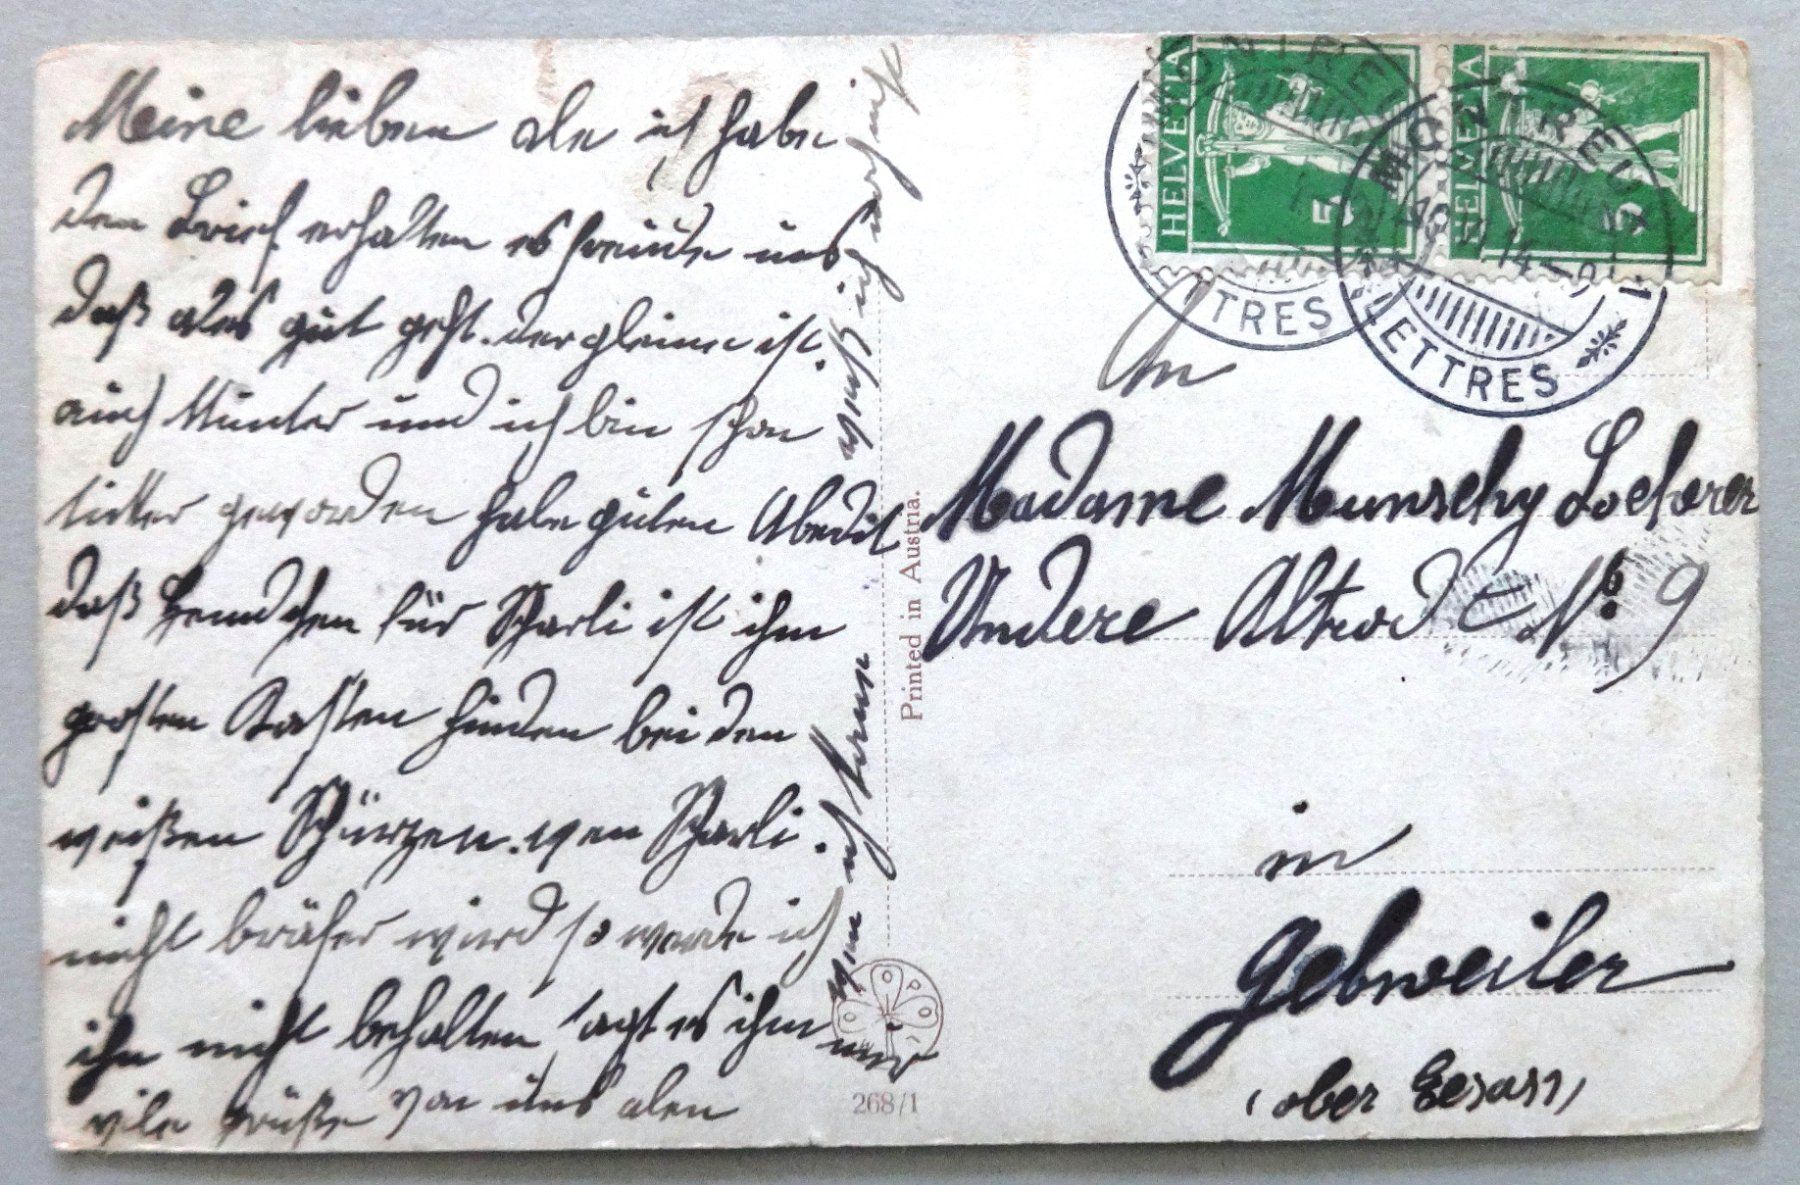 Meine lieben ale ich habe
den Brief erhalten es freute uns
daß ales gut geht. der gleine ist
auch Munter und ich bin schon
ticker geworden habe guten Abedit
daß Hemdchen für Scharli ist ihm
grosten Kasten hinden bei den
weißen Schürzen. wen Scharli
nicht bräfer wird so werde ich
ihn nicht behalten, sagt es ihm nur
vile grüße von uns alen
wen ich
muß ich auch
Printed in Austria.
OPO
268/1
HELVETIA
5
HELVETIA
5
MONTREUX
LETTRES
MONTREUX 1
LETTRES
An
Madame Munschy Locherer
Undere Altrod No 9
in
Gebweiler
(ober Elsass)